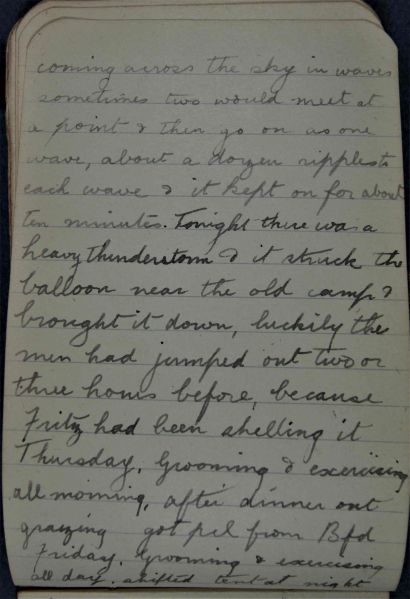 coming across the sky in waves
sometimes two would meet at
a point & then go on as one
wave, about a dozen ripples to
each wave & it kept on for about
ten minutes. Tonight there was a
heavy thunderstorm & it struck the
balloon near the old camp &
brought it down, luckily the
men had jumped out two or
three hours before, because
Fritz had been shelling it
Thursday. Grooming & exercising
all morning, after dinner out
graizing got pcl from Bfd
Friday. Grooming & exercising
all day. shifted tent at night